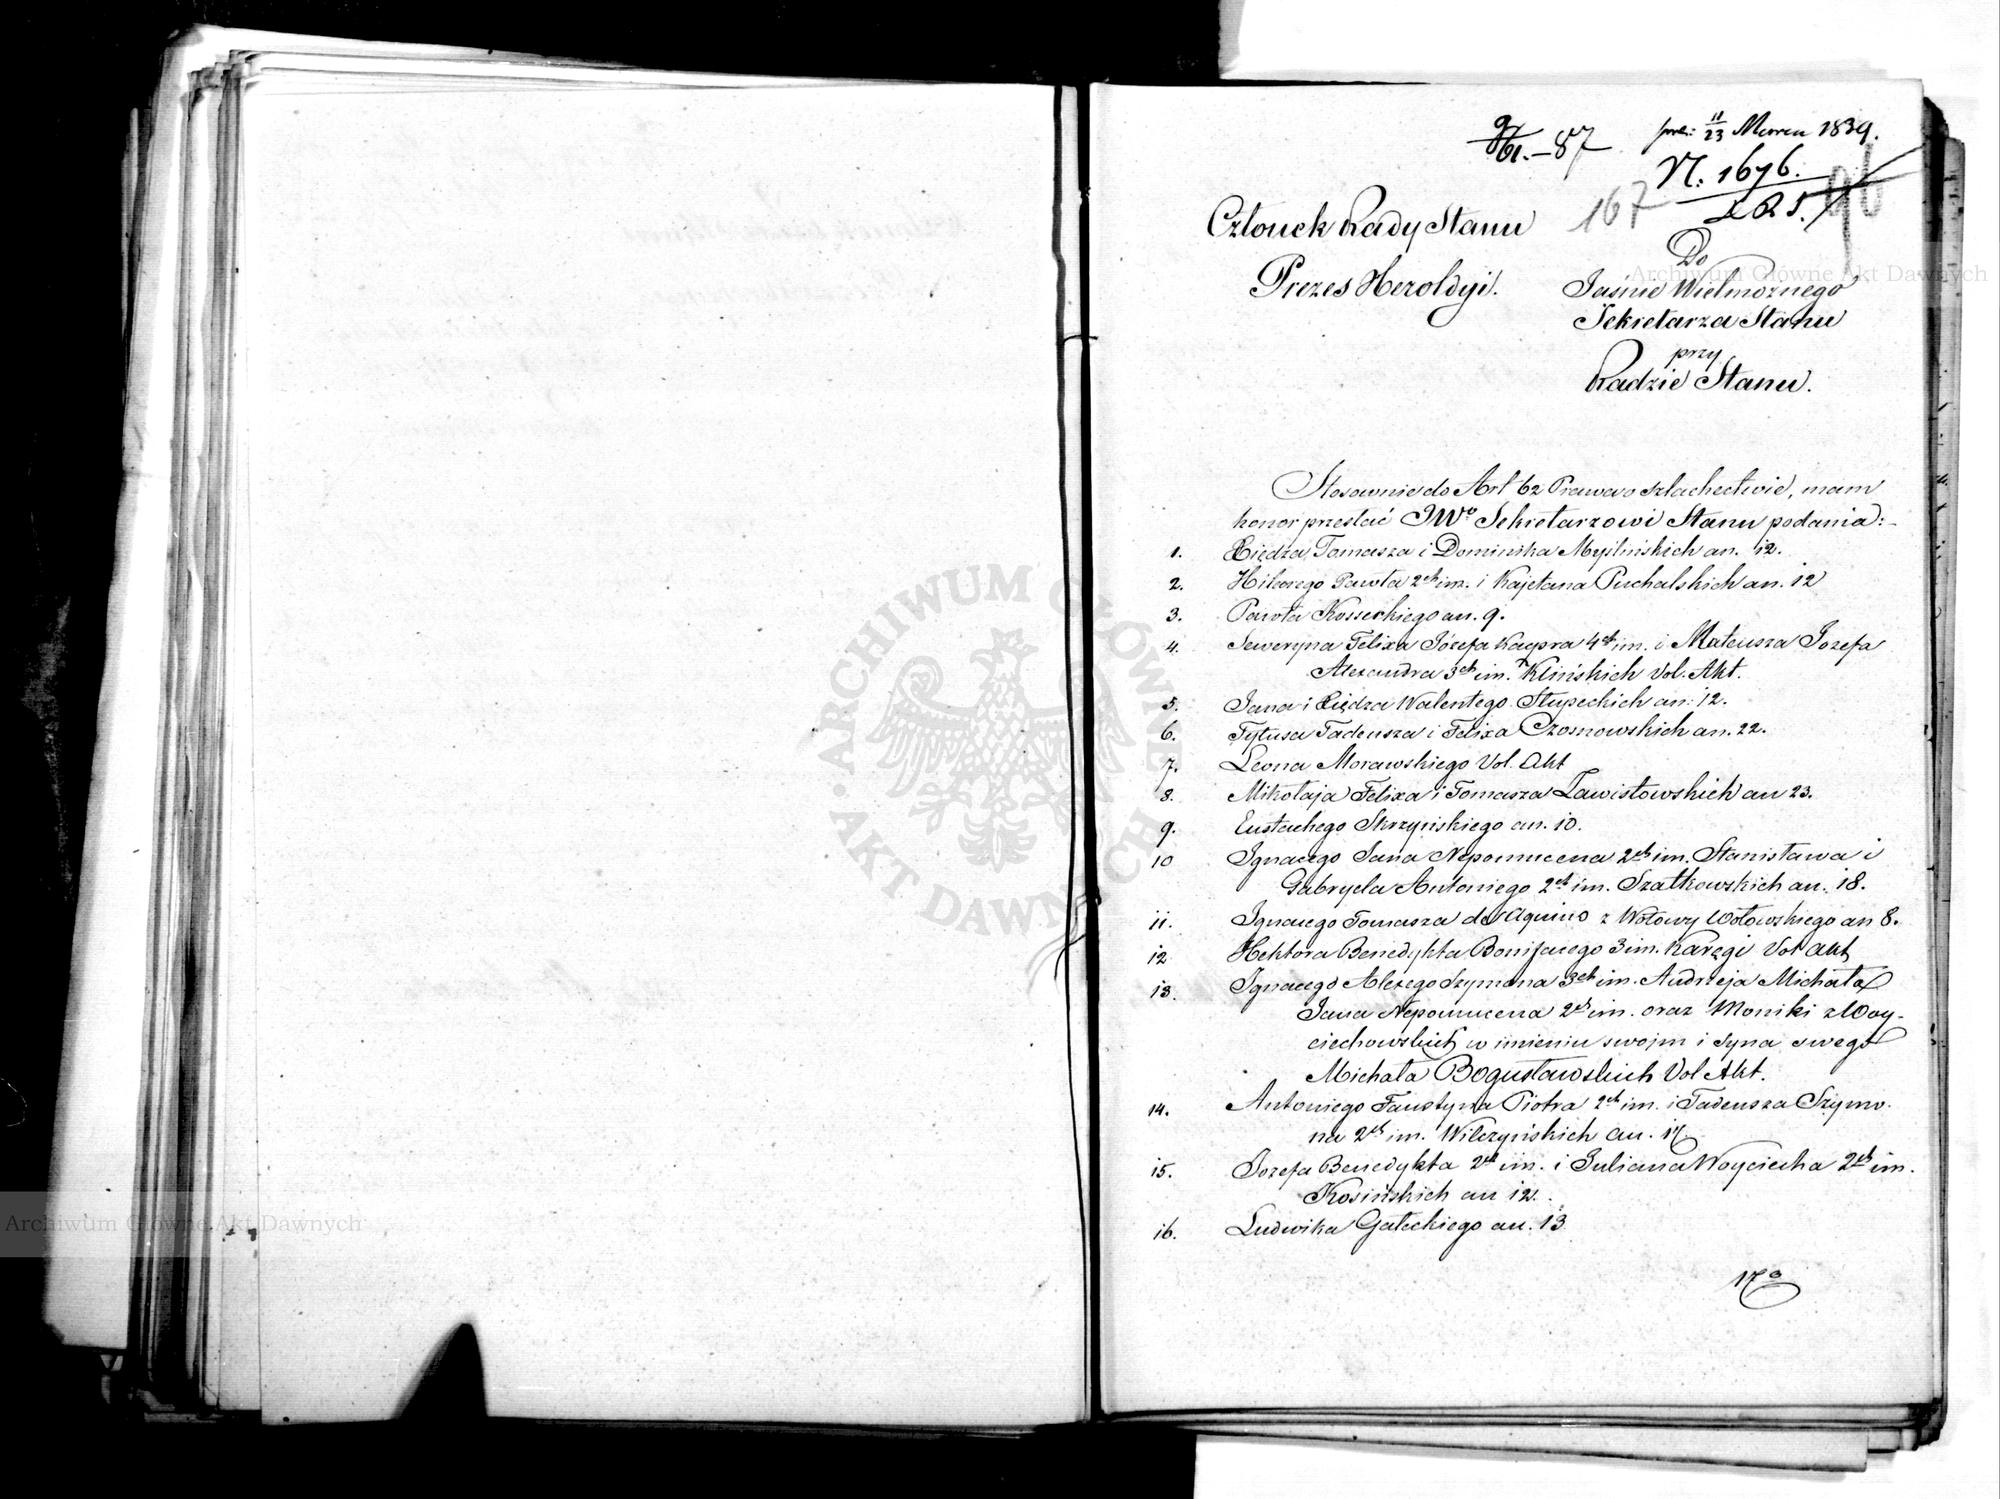 pre: 11/23 Marca 1839.
9/61.–87
N. 1676.
167
96
Członek Rady Stanu
Prezes Heroldyi.
Do
Jaśnie Wielmożnego
Sekretarza Stanu
przy
Radzie Stanu.
Stosownie do Art 62 Prawa o szlachectwie, mam
honor przesłać JWo Sekretarzowi Stanu podania:-
1. Xiędza Tomasza i Dominika Myślińskich an. 12.
2. Hilarego Pawła 2ch im. i Kajetana Puchalskich an. 12
3. Pawła Kosseckiego an. 9.
4. Seweryna Felixa Józefa Kacpra 4ch im. i Mateusza Jozefa
Alexandra 3ch im. Klińskich Vol. Akt.
5. Jana i Xiędza Walentego Słupeckich an. 12.
6. Tytusa Tadeusza i Felixa Czosnowskich an. 22.
7. Leona Morawskiego Vol. Akt
8. Mikołaja Felixa i Tomasza Zawistowskich an 23.
9. Eustachego Skrzyńskiego an. 10.
10 Ignacego Jana Nepomucena 2ch im. Stanisława i
Gabryela Antoniego 2ch im. Szatkowskich an. 18.
11. Ignacego Tomasza de Aquino z Wołowy Wołowskiego an 8.
12 Hektora Benedykta Bonifacego 3 im. Karęgi Vol Akt
13. Ignacego Alexego Szymona 3ch im. Andrzeja Michała
Jana Nepomucena 2ch im. oraz Moniki z Woy-
ciechowskich w imieniu swojm i syna swego
Michała Bogusławskich Vol Akt.
14. Antoniego Faustyna Piotra 2ch im. i Tadeusza Szymo-
na 2ch im. Wilczyńskich an. 17
15. Jozefa Benedykta 2ch im. i Juliana Woyciecha 2ch im.
Kosińskich an 12.
16. Ludwika Gałeckiego an. 13
ARCHIWUM GŁÓWNE • AKT DAWNYCH •
Archiwum Główne Akt Dawnych
Archiwum Główne Akt Dawnych